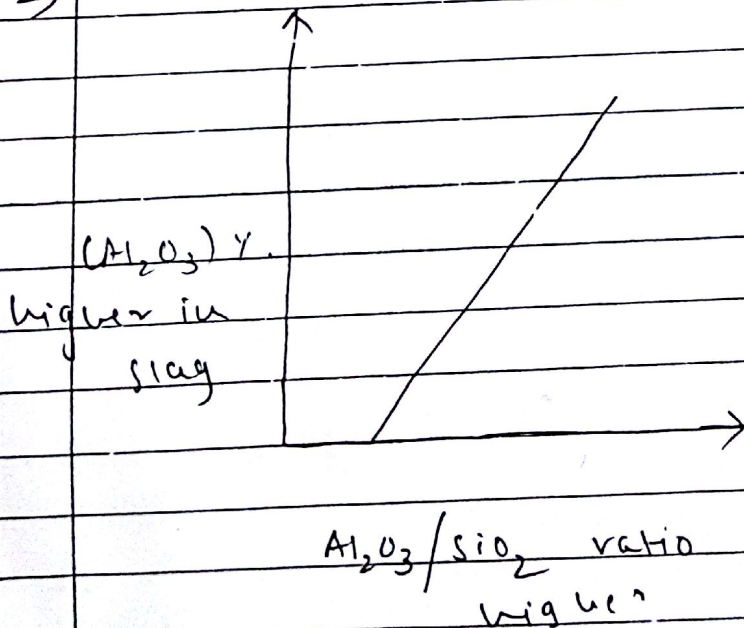 (Al₂O₃) %.
higher in
slag
Al₂O₃/SiO₂ ratio
higher